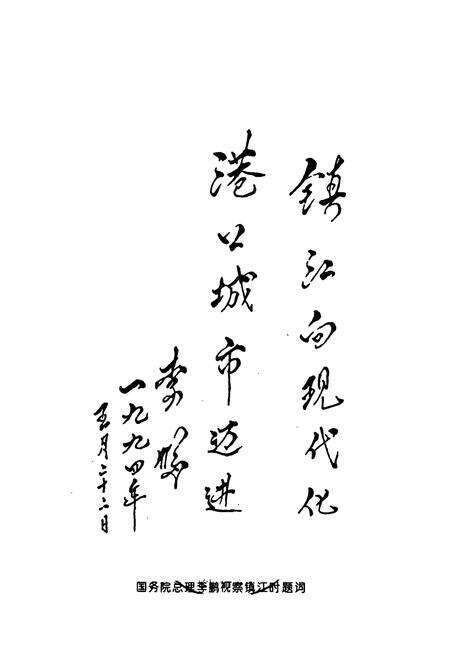 镇江向现代化
港口城市迈进
李鹏
一九九四年
五月二十二日
国务院总理李鹏视察镇江时题词